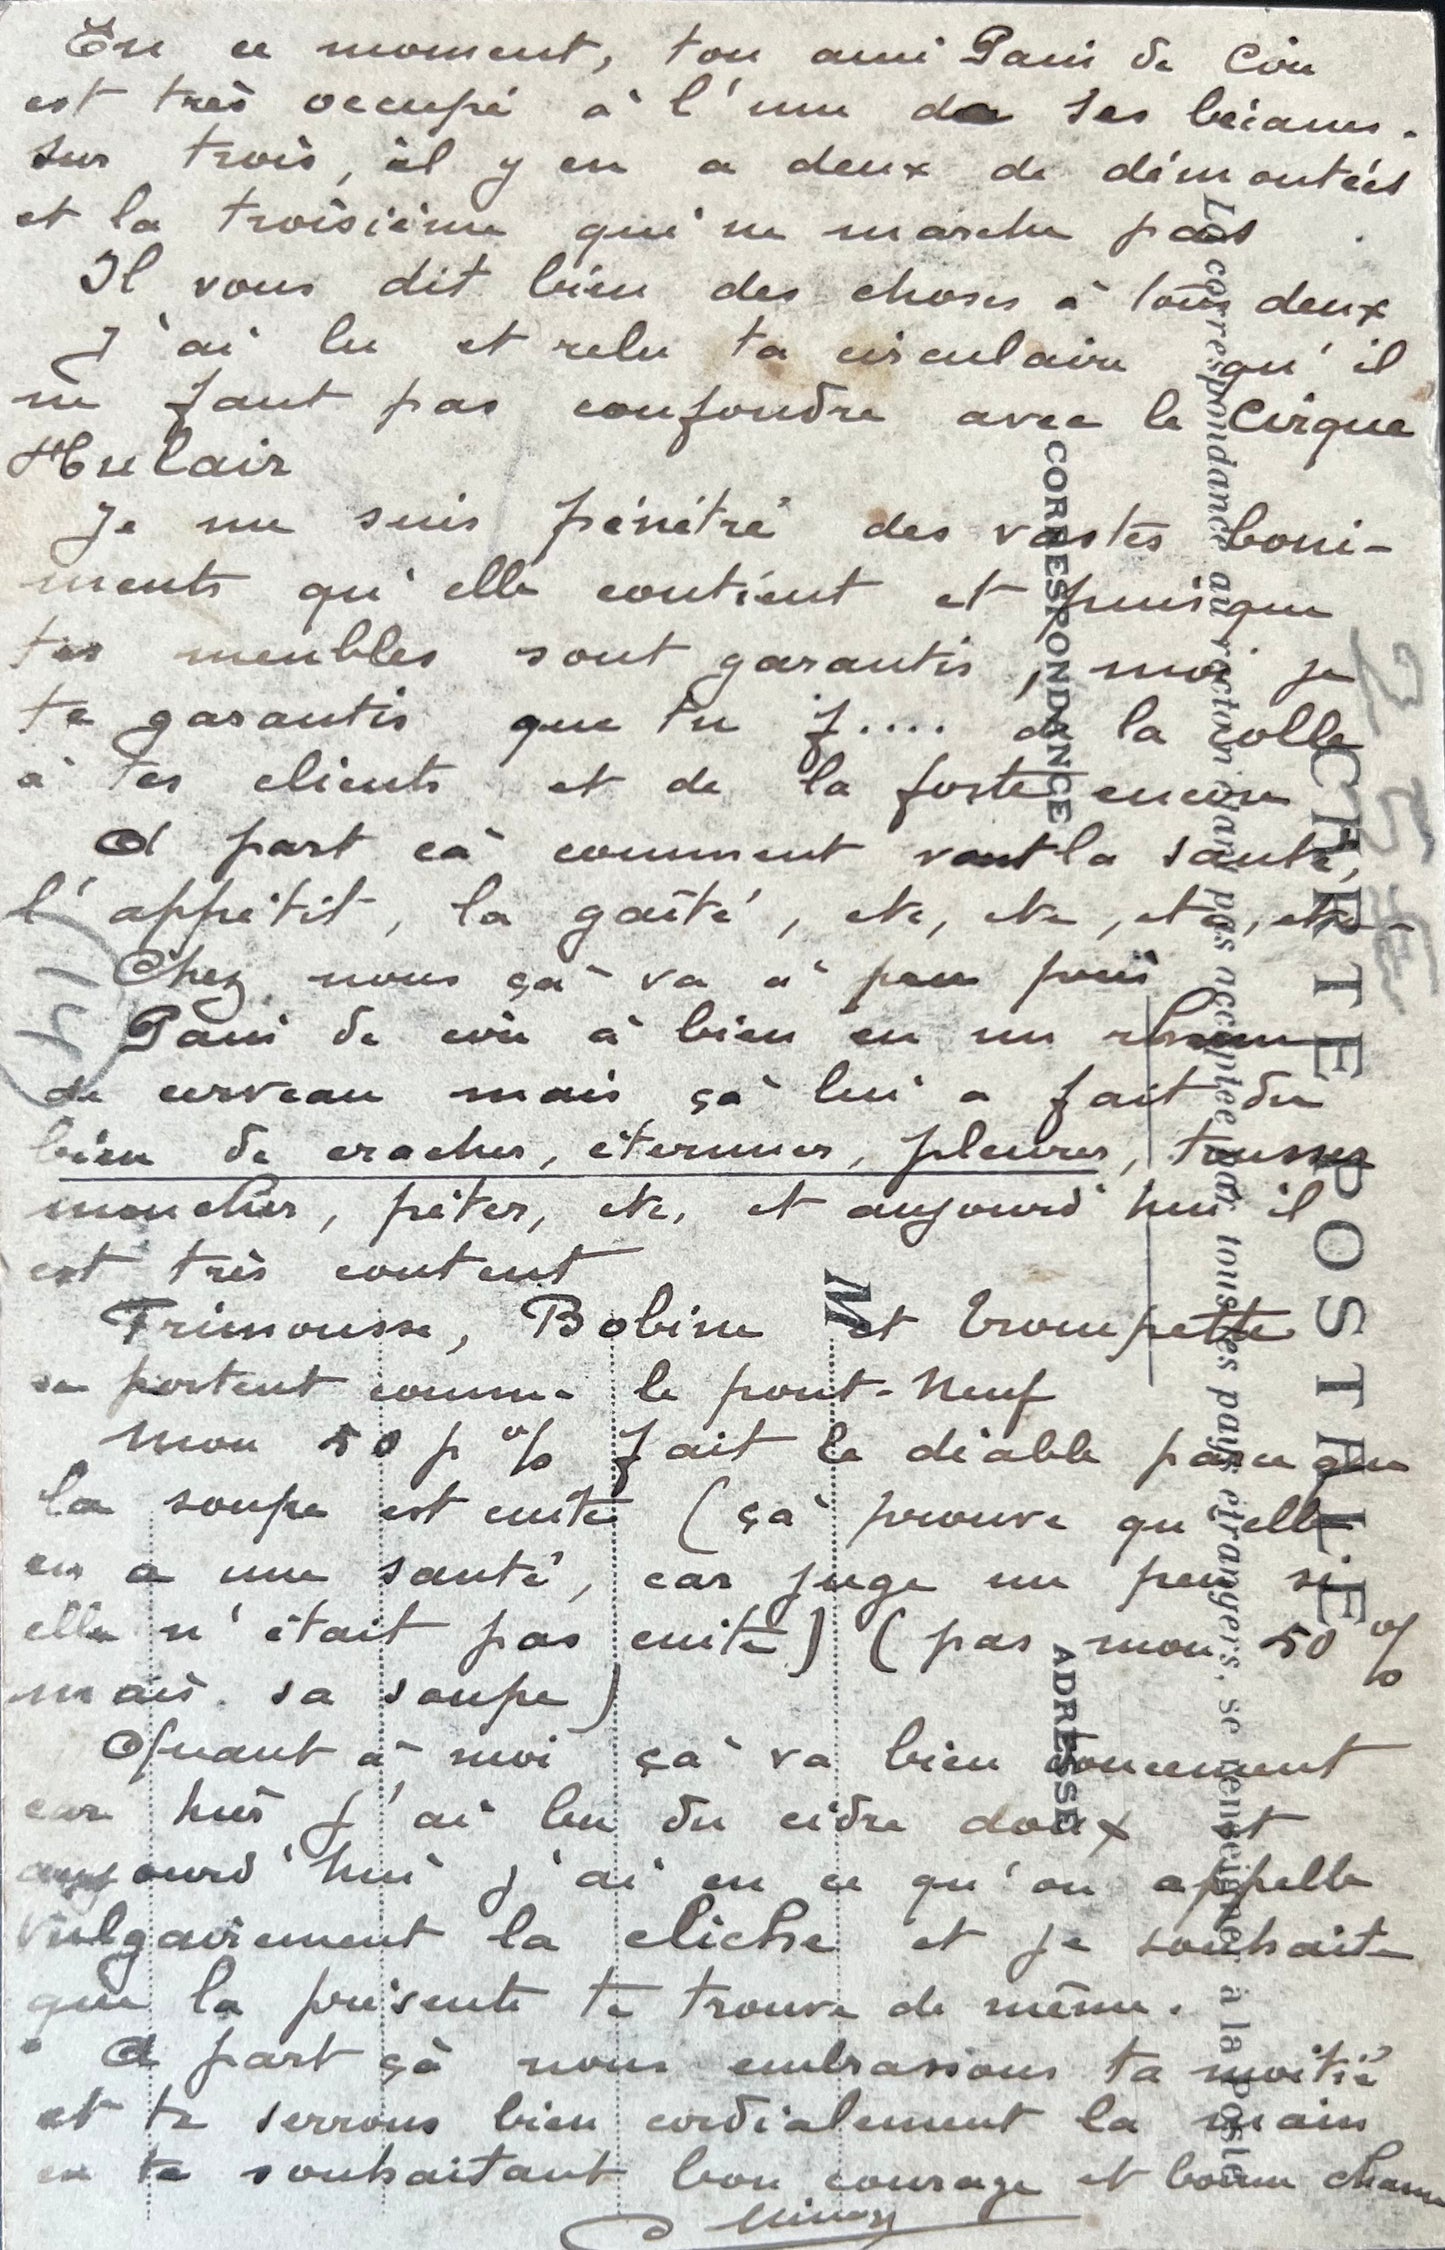 En ce moment, ton ami Pani de Coin
est très occupé à l'une de ses bécanes.
Sur trois, il y en a deux de démontées
et la troisième qui ne marche pas
Il vous dit bien des choses à tous deux
J'ai lu et relu ta circulaire qu'il
ne faut pas confondre avec le Cirque
Hulair
Je me suis pénétré des vastes boni-
ments qu'elle contient et puisque
tes meubles sont garantis, moi je
te garantis que tu f.... de la colle
à tes clients et de la forte encore
A part çà comment vont la santé,
l'appétit, la gaîté, etc, etc, etc, etc..
Chez nous çà va à peu près
Pani de coin à bien eu un rhume
de cerveau mais çà lui a fait du
bien de cracher, éternuer, pleurer, tousser
moucher, péter, etc. et aujourd'hui il
est très content
Frimousse, Bobine et Trompette
se portent comme le pont-Neuf
Mon 50 p % fait le diable parce que
la soupe est cuite (çà prouve qu'elle
en a une santé, car juge un peu si
elle n'était pas cuite) (pas mon 50 %
mais sa soupe)
Quant à moi çà va bien doucement
car hier j'ai bu du cidre doux et
aujourd'hui j'ai eu ce qu'on appelle
vulgairement la cliche et je souhaite
que la présente te trouve de même.
A part çà nous embrassons ta moitié
et te serrons bien cordialement la main
en te souhaitant bon courage et bonne chance
CARTE POSTALE
La correspondance au recto n'est pas acceptée par tous les pays étrangers, se renseigner à la Poste
CORRESPONDANCE
ADRESSE
M